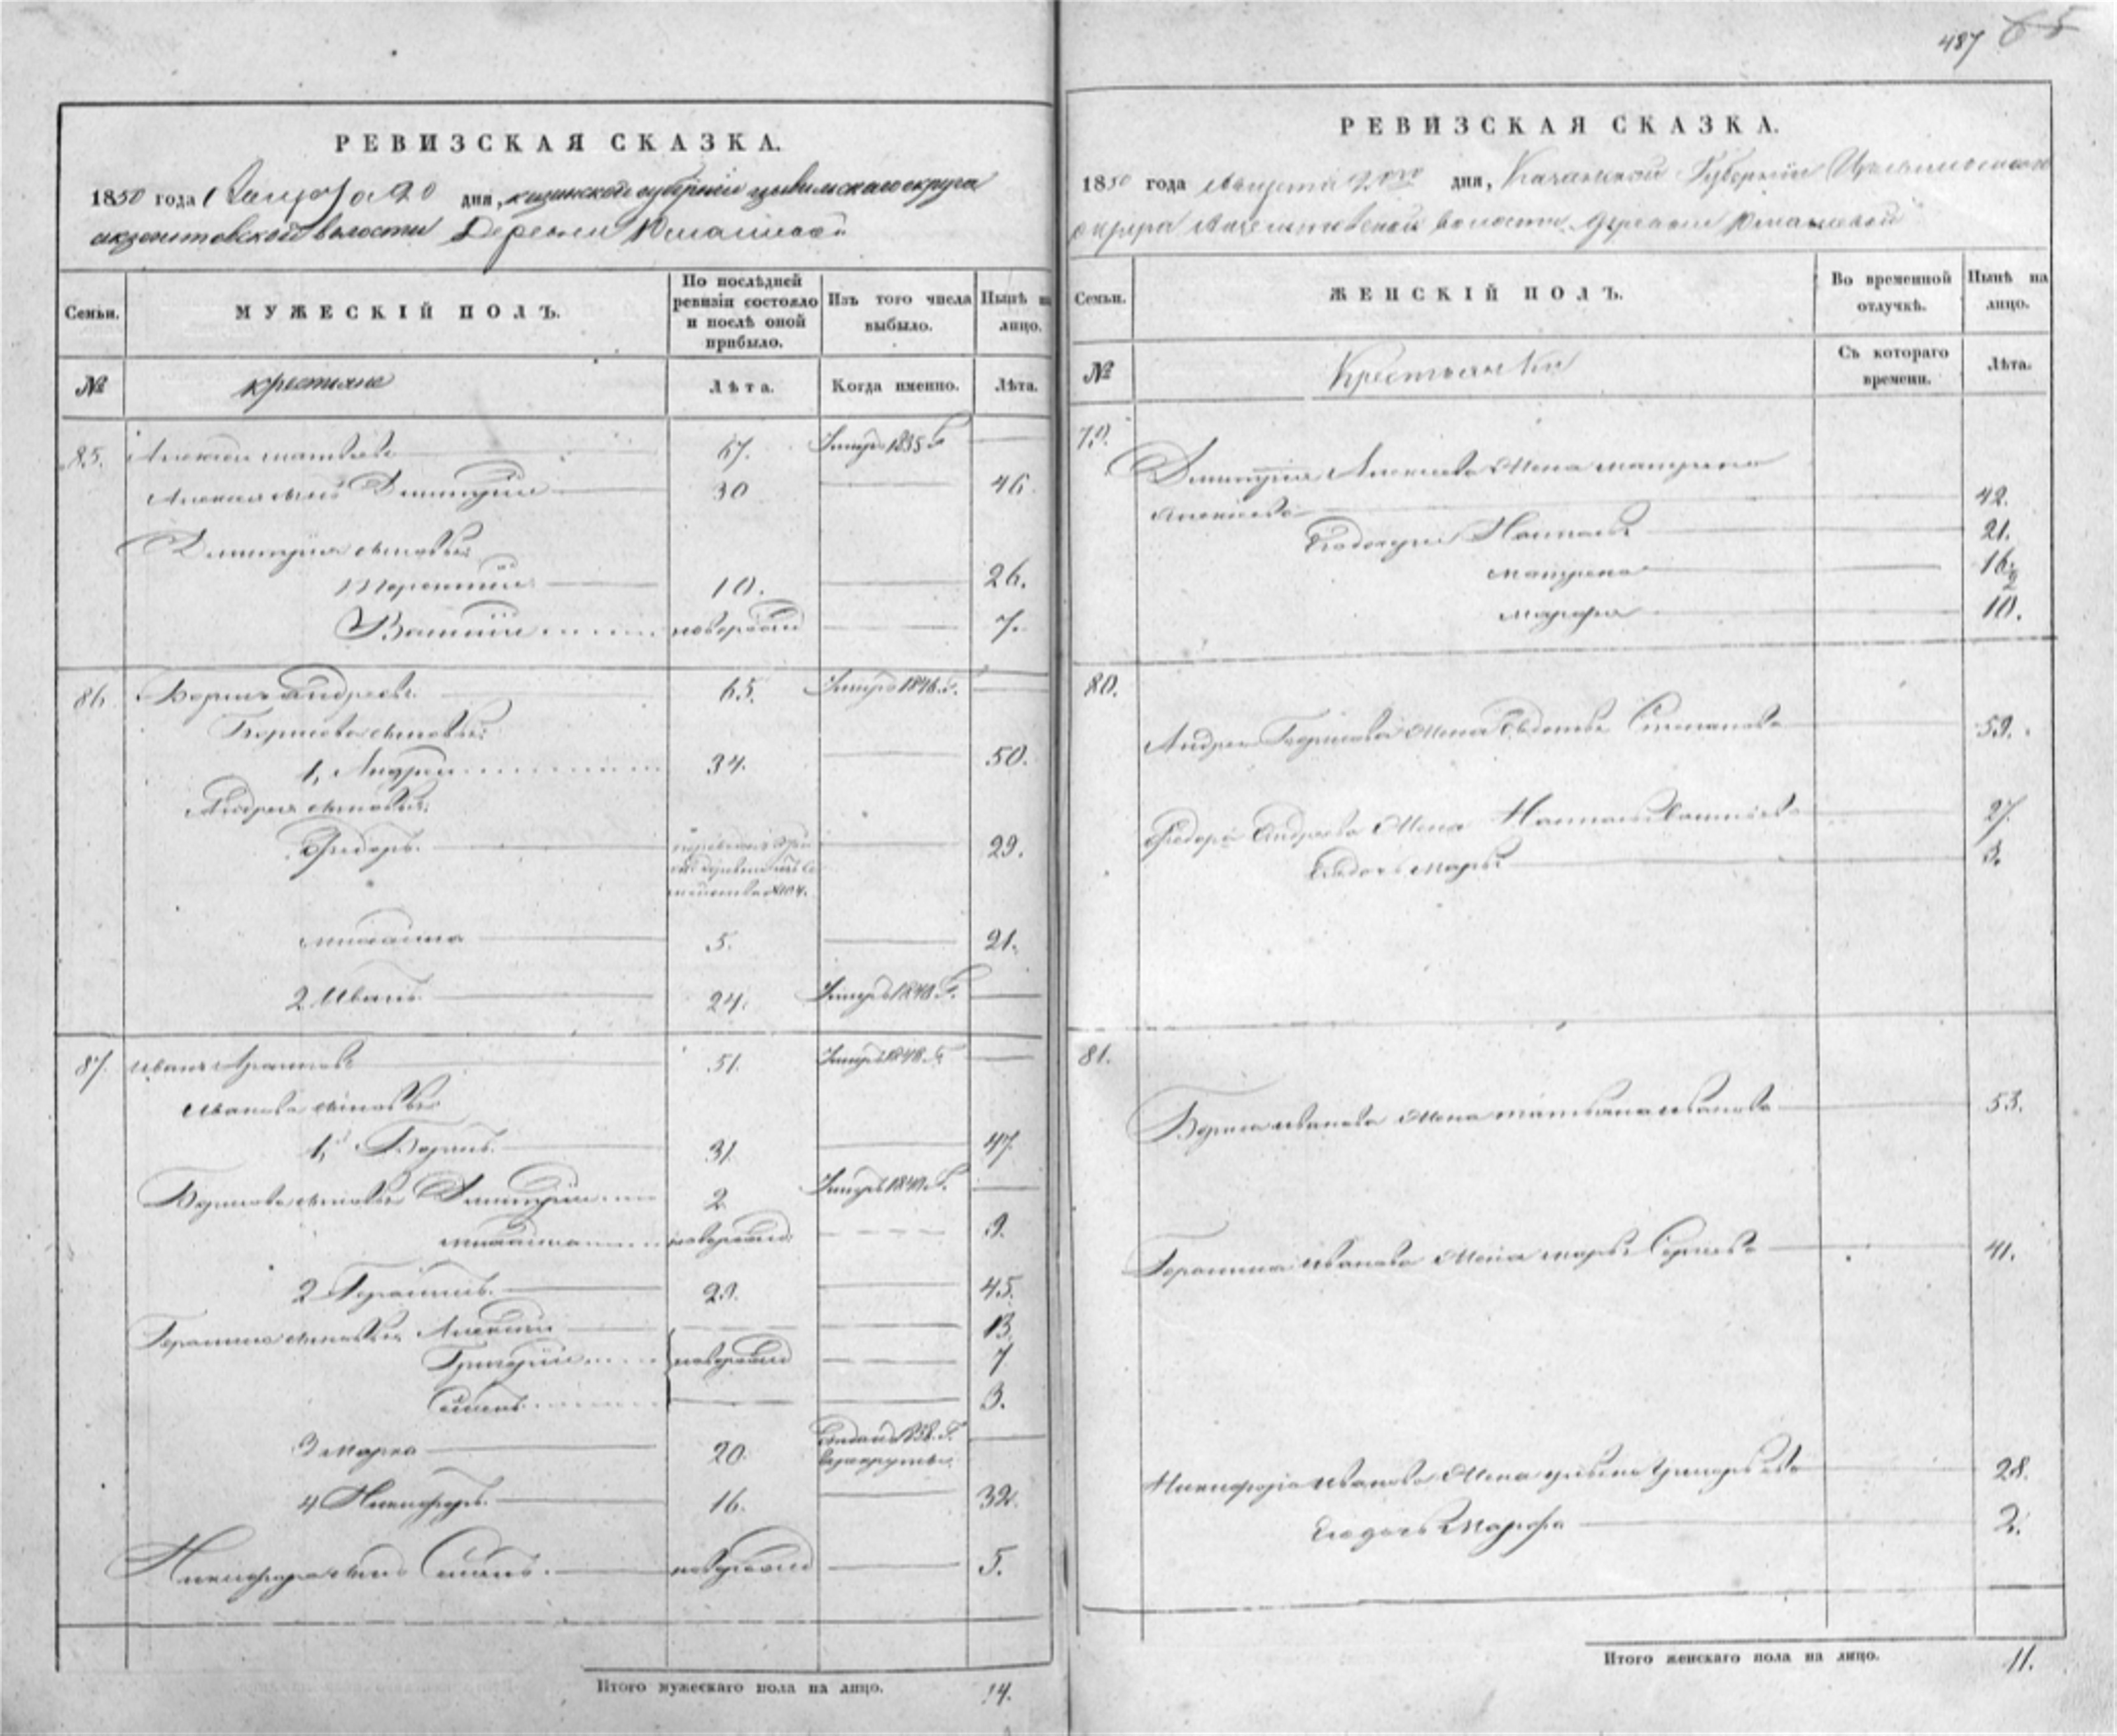 487 65
РЕВИЗСКАЯ СКАЗКА.
1850 года Августа 20 дня, казанской губернии цывильскаго округа
акзегитовской волости Деревни
Семьи. МУЖЕСКІЙ ПОЛЪ. По послѣдней ревизіи состояло и послѣ оной прибыло. Изъ того числа выбыло. Нынѣ на лицо.
№ крестьяне Лѣта. Когда именно. Лѣта.
85. Алексей матвеевъ 67. Умеръ 1835 Г
Алексея сынъ Димитрий 30 46.
Димитрия сыновья:
Терентий 10. 26.
Василий новорожден 7.
86. Борисъ андреевъ 65. Умеръ 1846. Г.
Борисова сыновья:
1, Андрей 34. 50.
Андрея сыновья:
Федоръ. 29.
михайла 5. 21.
2 Иванъ 24. Умеръ 1840. Г.
87. иванъ 51. Умеръ 1848. Г.
Иванова сыновья:
1, Борисъ. 31. 47.
Борисова сыновья Димитрий 2. Умеръ 1840. Г.
михайла новорожден 9.
2 Герасимъ. 29. 45.
Герасима сыновья Алексей 13.
Григорий новорожден 7
Семенъ 3.
3 марко 20. отданъ 1838. Г. в рекруты.
4 Никифоръ. 16. 32.
Никифора сынъ Семенъ. новорожден 5.
Итого мужескаго пола на лицо. 14.
РЕВИЗСКАЯ СКАЗКА.
1850 года Августа 20го дня, Казанской Губернии Цывильскаго
округа Акзегитовской волости деревни
Семьи. ЖЕНСКІЙ ПОЛЪ. Во временной отлучкѣ. Нынѣ на лицо.
№ Крестьянки Съ котораго времени. Лѣта.
79.
Димитрия Алексеева жена матрена
Алексеева 42.
Ево дочери Наталья 21.
матрена 16 1/2
марфа 10.
80.
Андрея Борисова жена Авдотья Степанова 59.
Федора Андреева жена Наталья 27.
Ево дочь марья 3.
81.
Бориса иванова жена татьяна иванова 53.
Герасима иванова жена марья Сергеева 41.
Никифора иванова жена ульяна григорьева 28.
Ево дочь Марфа 2.
Итого женскаго пола на лицо. 11.